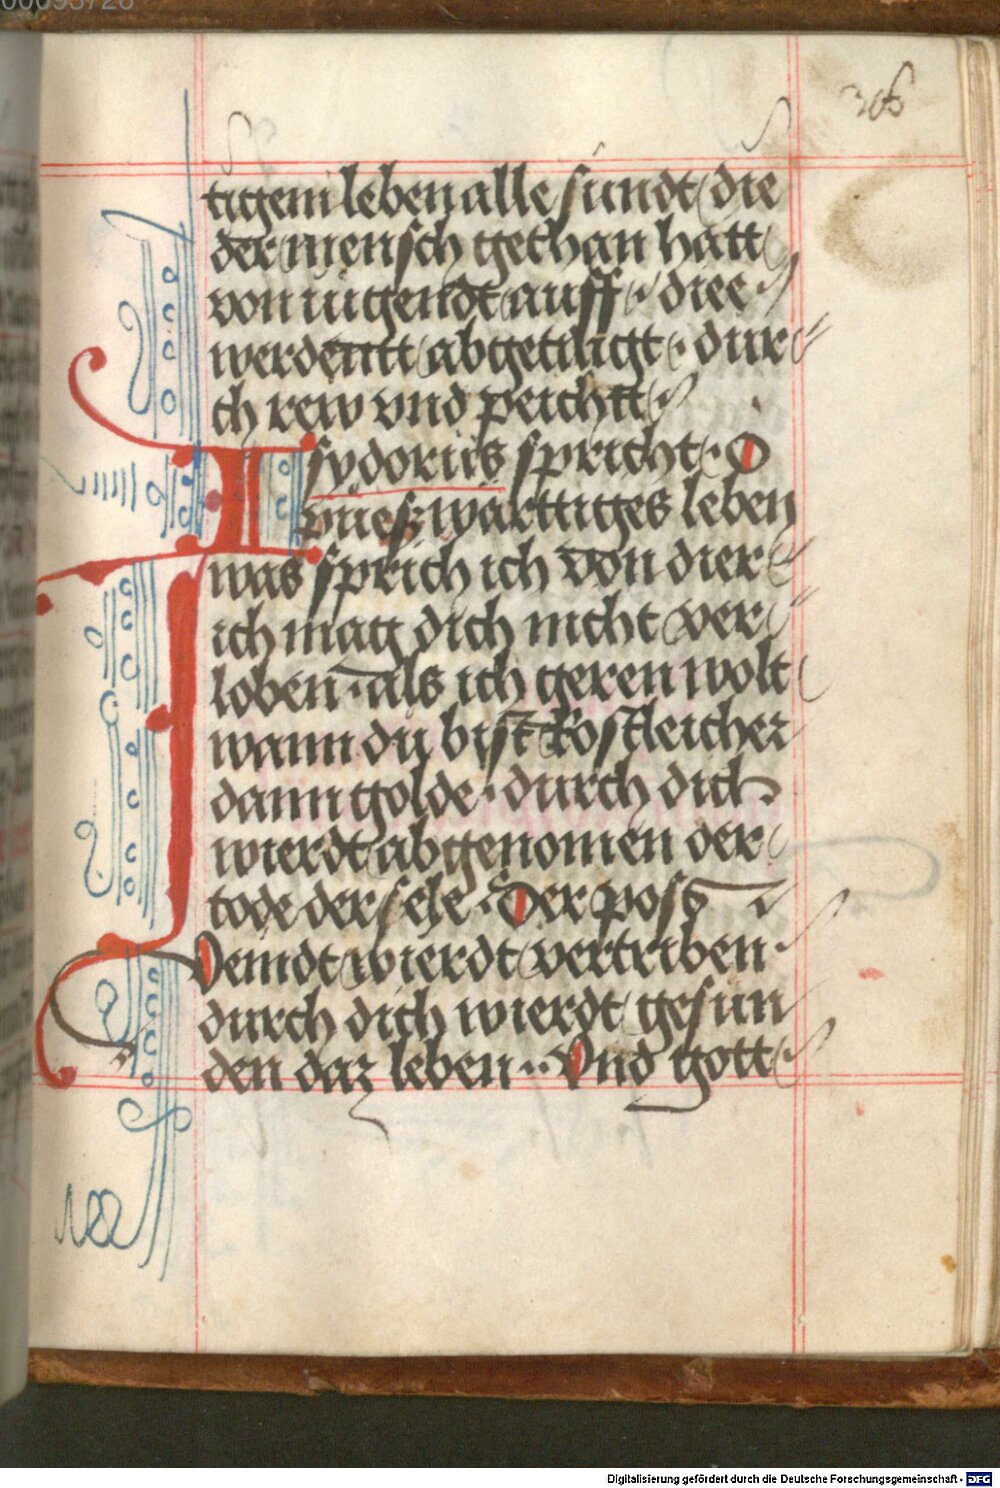 306
tigem leben alle sundt die
der mensch gethan hatt
von iugendt auff · diee ·
werdentt abgetiligt · dur
ch rew vnd peichtt
Isydorius spricht · O
pueswärttiges leben
was sprich ich von dier
ich mag dich nicht ver
loben · als ich geren wolt
wann du bist kostleicher
dann golde · durch dich
wierdt abgenomen der
tode der sele · Der poss
veindt wierdt vertriben ·
durch dich wierdt gesun
den daz leben · Vnd gott
Digitalisierung gefördert durch die Deutsche Forschungsgemeinschaft - DFG